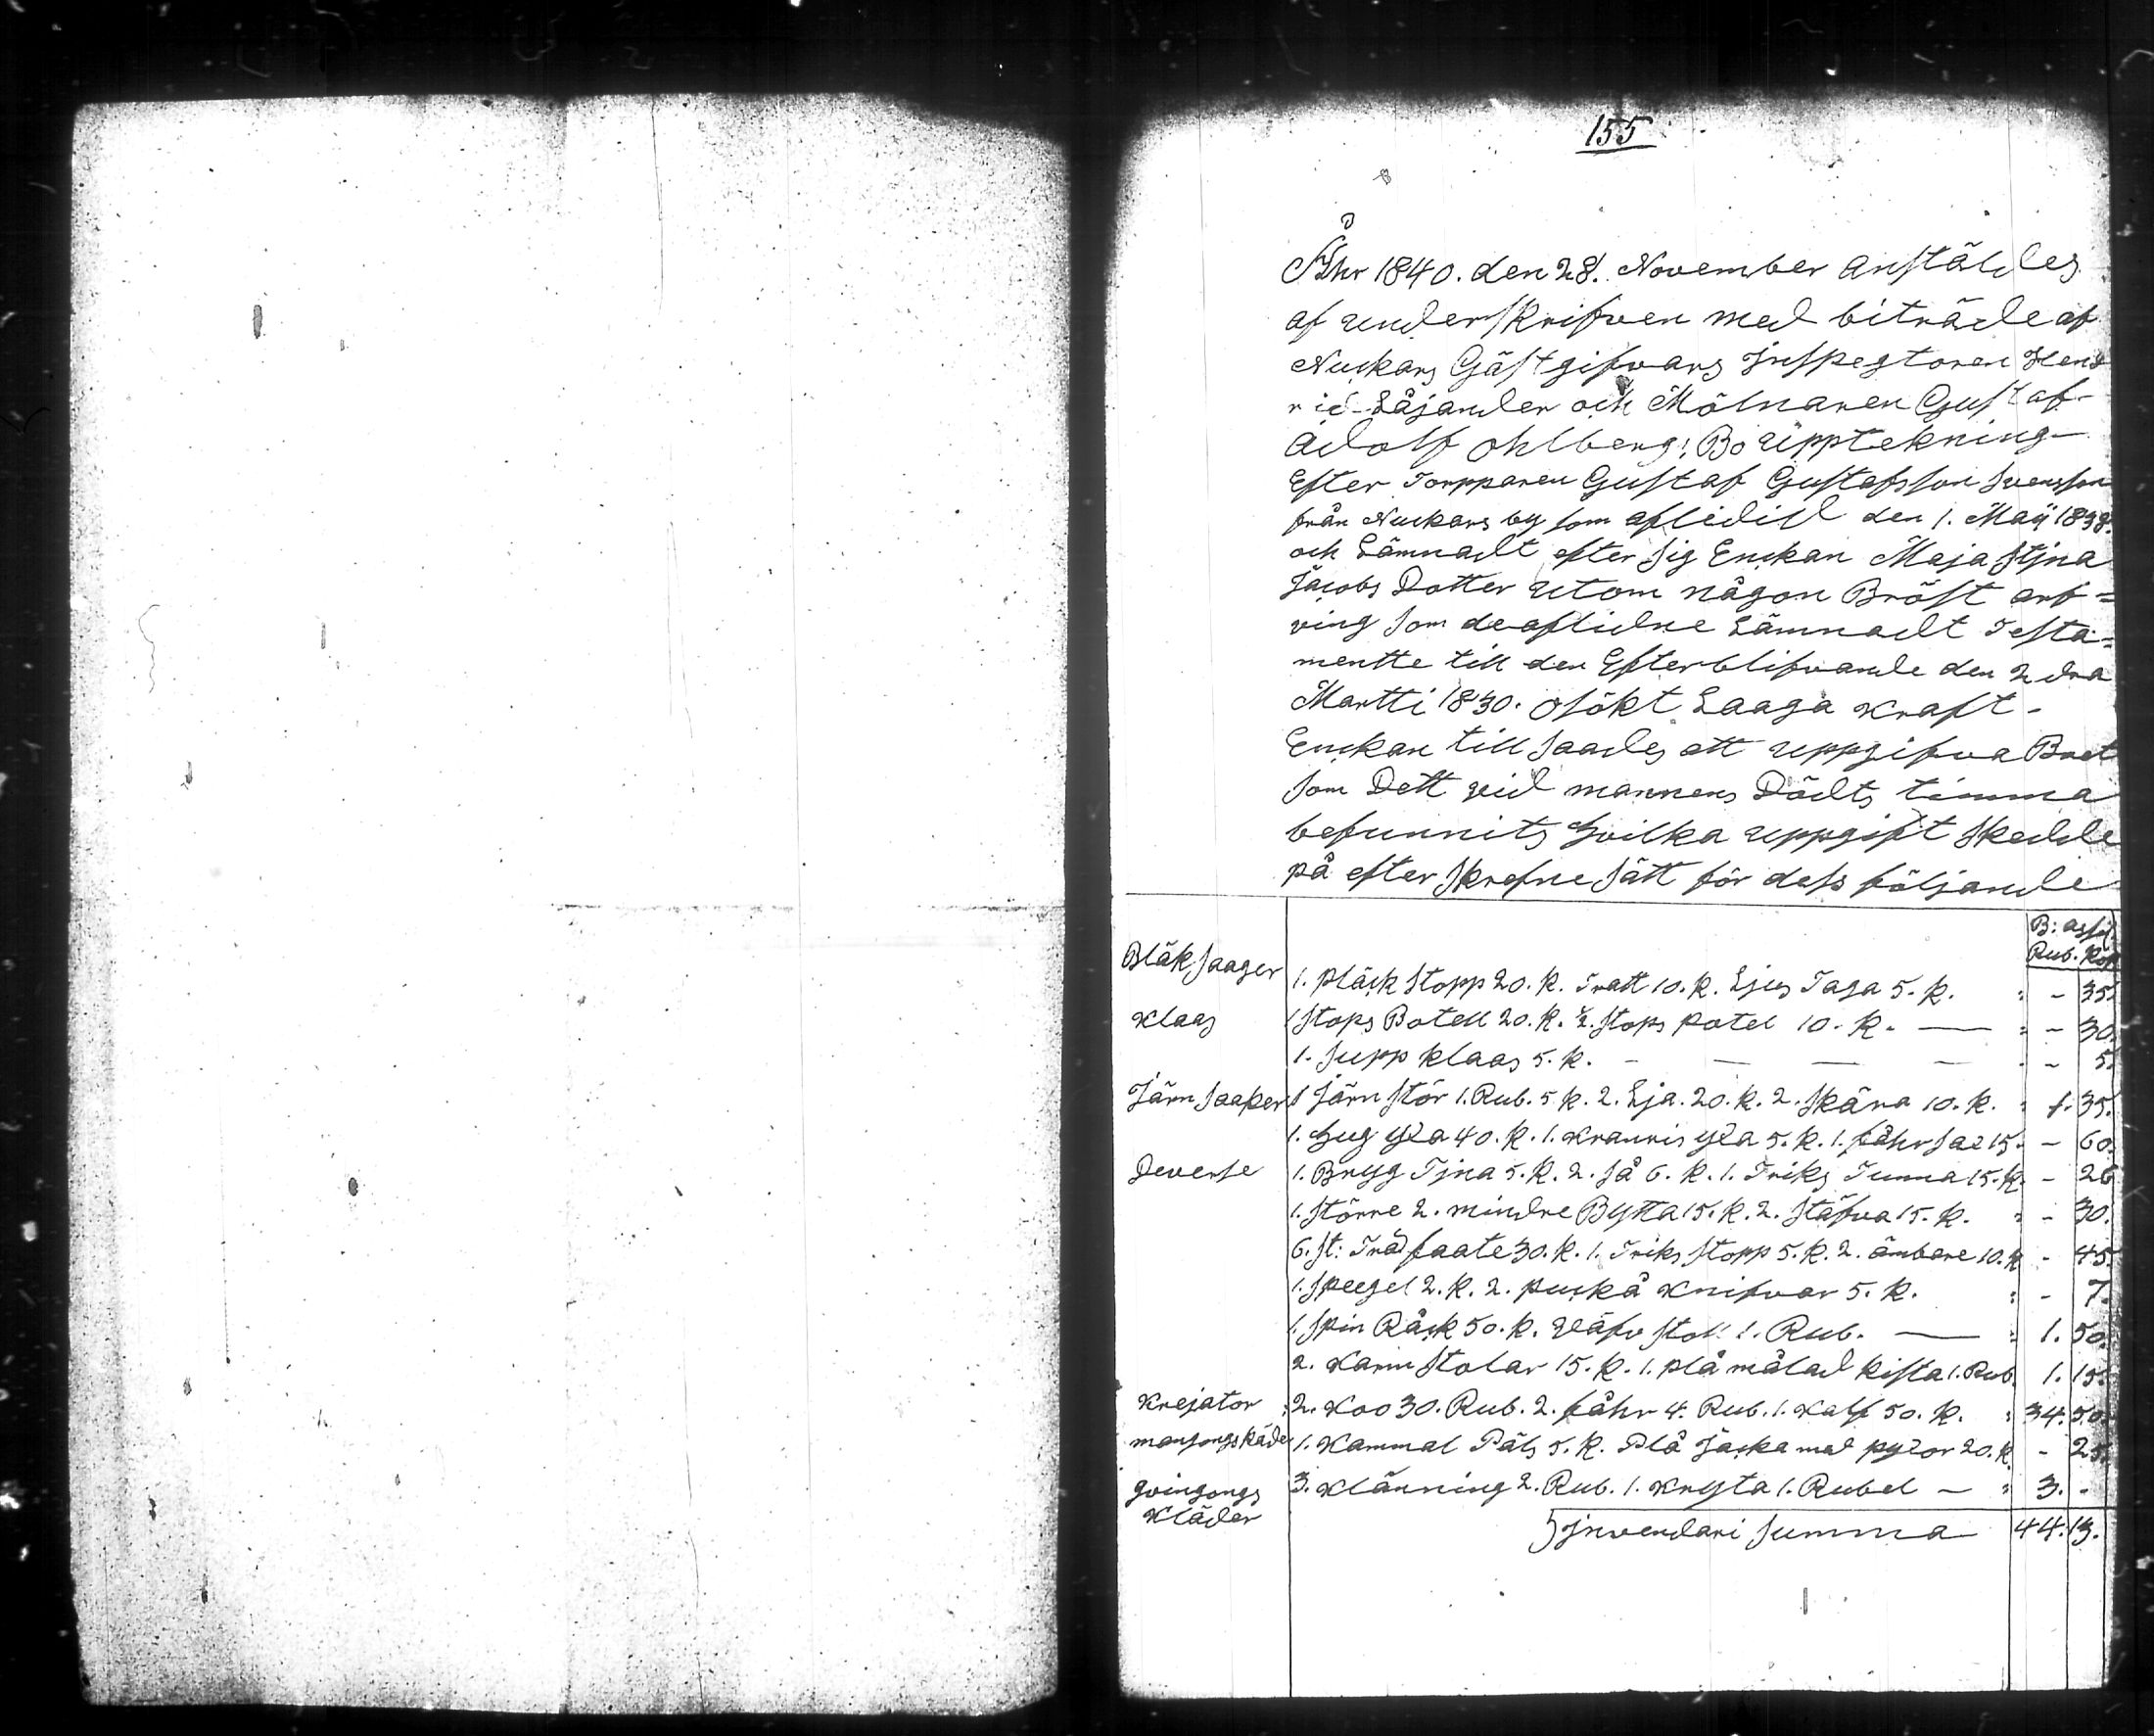 155
Åhr 1840. den 28. November anstäldes
af underskrifven med biträde af
Nuckars Gästgifvars Inspegtoren Hend
rid Låjander och Mölnaren Gustaf
Adolf Ohlberg: Bo upptekning
Efter Torpparen Gustaf Gustafsson Svensson
från Nuckars by som aflidid den 1. Maij 1838.
och Lämnadt efter sig Enckan Maja Stjna
Jacobs Dotter utom någon Bröst arf=
ving som de aflidne Lämnadt Testa=
mentte till den Efterblifvande den 2 dra
Martti 1830. osökt Laaga Kraft-
Enckan till saades att uppgifva Boet
som Dett vid mannens Dödts timma
befunnits hvilka uppgift skedde
på efter skrefne sätt för dess följande
B: assi
Rub. Kop
Bläk saager 1. pläck stopp 20. K. Tratt 10. K. Ljus Taga 5. K. - 35.
Klaas 1 Stops Botell 20. K. ½. stops potel 10. K. - 30.
1. supp klaas 5. K. - 5.
Järn saaker 1 Järn stör 1. Rub. 5 K. 2. Lja. 20. K. 2. skära 10. K. 1. 35.
1. hug yxa 40. K. 1. krauris yxa 5. K. 1. fåhr sax 15. - 60.
Deverse 1. Bryg Tjna 5. K. 2. så 6. K. 1. Triks Tunna 15. K. - 26
1. större 2. mindre Bytta 15. K. 2. stäfva 15. K. - 30.
6. st: Träd faate 30. K. 1. Triks stopp 5. K. 2. ämbare 10. K - 45.
1. speegel 2. K. 2. puckå Knifvar 5. K. - 7.
1. spin Råck 50. K. Väfv stoll 1. Rub. 1. 50.
2. Karm stolar 15. K. 1. plå målad kista 1. Rub. 1. 15.
Krejator 2. Koo 30. Rub. 2. fåhr 4. Rub. 1. Kalf 50. K. 34. 50.
mansongs käder 1. Kammal Päls 5. K. Plå Jacka med pyxor 20. K. - 25.
qvingongs
Kläder 3. Klänning 2. Rub. 1. Kryta 1. Rubel - 3. -
Invendari summa 44. 13.